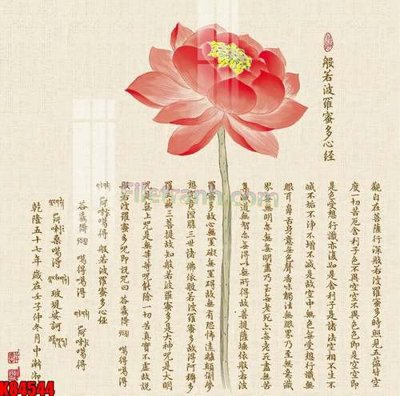 般若波羅蜜多心經
觀自在菩薩行深般若波羅蜜多時照見五蘊皆空
度一切苦厄舍利子色不異空空不異色色即是空空即
是色受想行識亦復如是舍利子是諸法空相不生不
滅不垢不淨不增不減是故空中無色無受想行識無
眼耳鼻舌身意無色聲香味觸法無眼界乃至無意識
界無無明亦無無明盡乃至無老死亦無老死盡無苦集
滅道無智亦無得以無所得故菩提薩埵依般若波
羅蜜多故心無罣礙無罣礙故無有恐怖遠離顛倒夢
想究竟涅槃三世諸佛依般若波羅蜜多故得阿耨多
羅三藐三菩提故知般若波羅蜜多是大神咒是大明
咒是無上咒是無等等咒能除一切苦真實不虛故說
般若波羅蜜多咒即說咒曰
般若波羅蜜多心經
乾隆五十七年歲在壬子仲冬月中澣御
filetranh.com
K04544